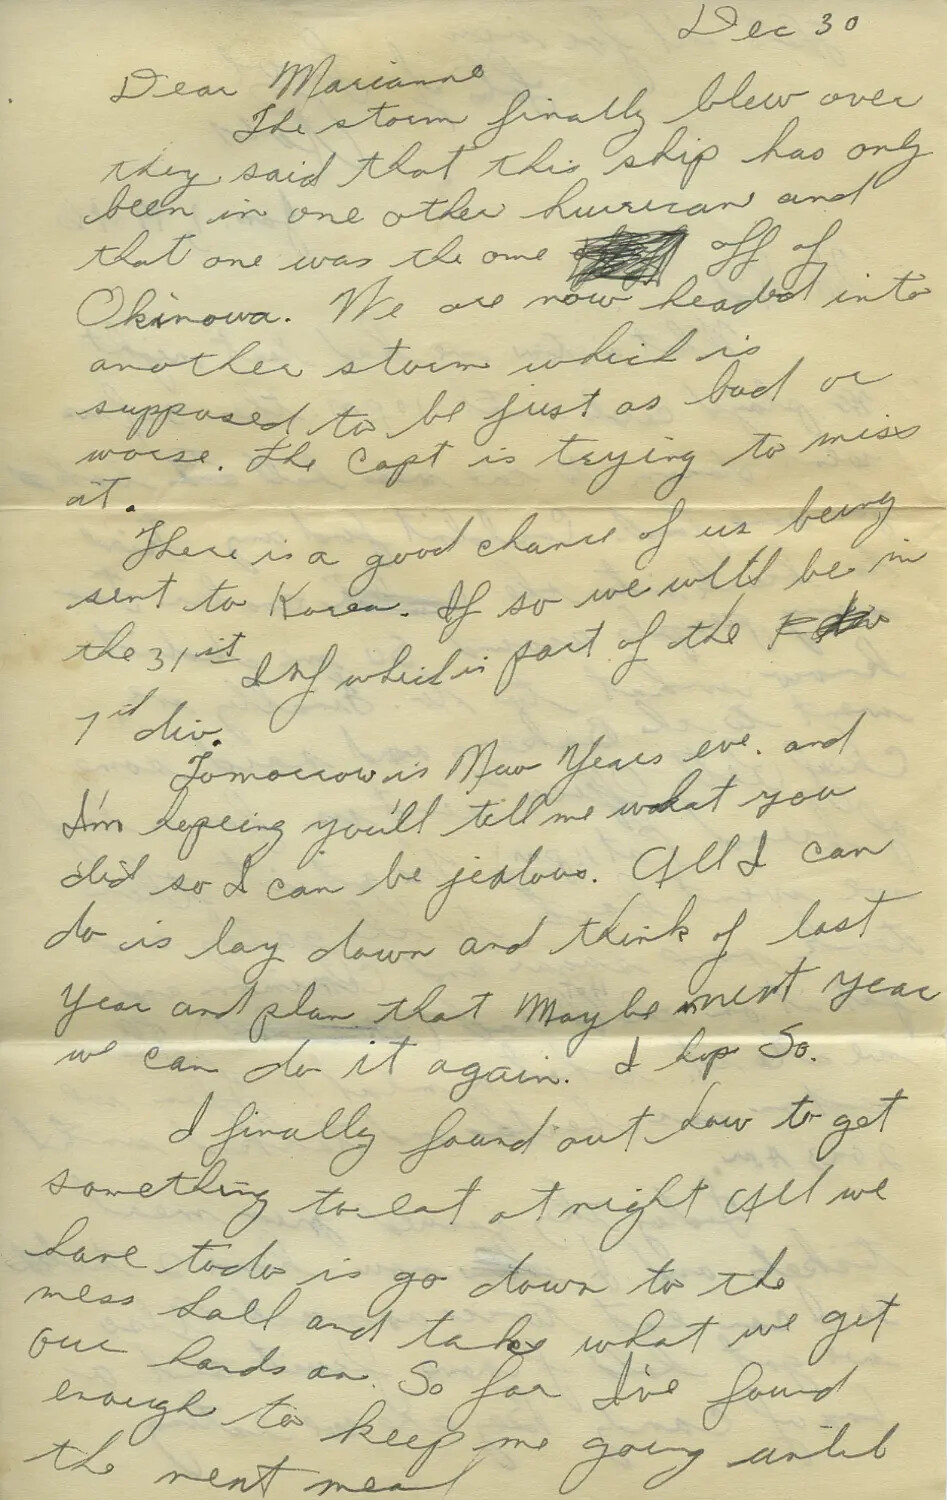 Dec 30
Dear Marianne
The storm finally blew over
they said that this ship has only
been in one other hurrican and
that one was the one off of
Okinowa. We are now headed into
another storm which is
supposed to be just as bad or
worse. The Capt is trying to miss
it.
There is a good chance of us being
sent to Korea. If so we will be in
the 31st Inf which is part of the
7th div.
Tomorrow is New Years eve. and
I'm hopeing you'll tell me what you
did so I can be jealous. All I can
do is lay down and think of last
year and plan that Maybe next year
we can do it again. I hop So.
I finally found out how to get
something to eat at night All we
have to do is go down to the
mess hall and take what we get
our hands on. So far I've found
enough to keep me going until
the next meal